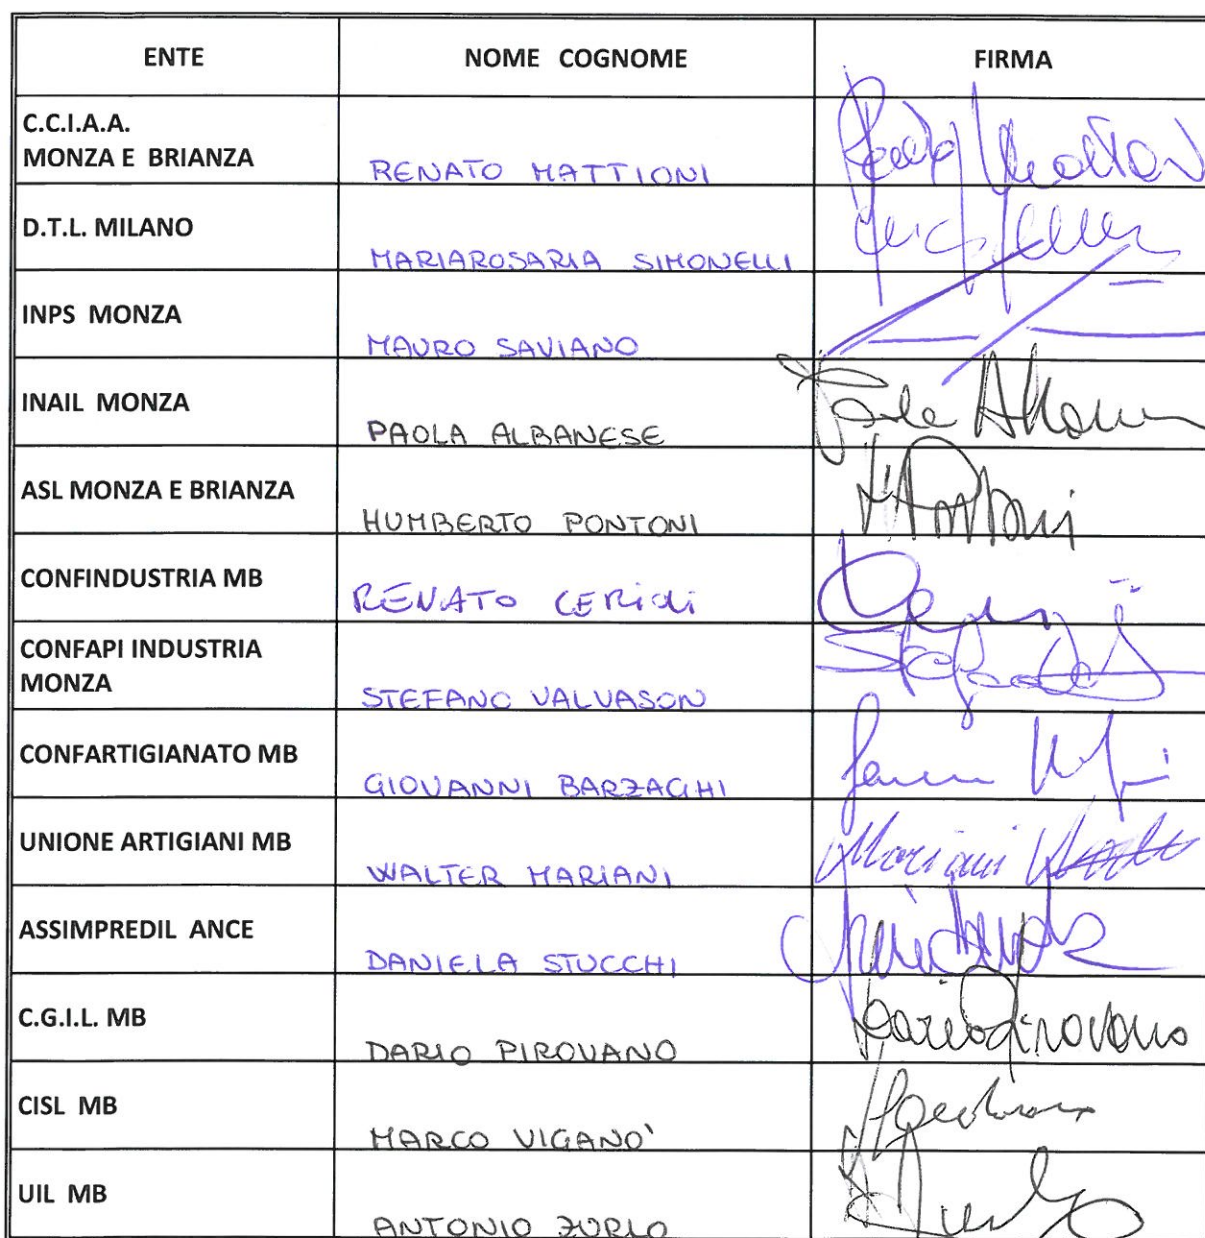 ENTE NOME COGNOME FIRMA
C.C.I.A.A.
MONZA E BRIANZA RENATO MATTIONI
D.T.L. MILANO MARIAROSARIA SIMONELLI
INPS MONZA MAURO SAVIANO
INAIL MONZA PAOLA ALBANESE
ASL MONZA E BRIANZA HUMBERTO PONTONI
CONFINDUSTRIA MB RENATO CERIOLI
CONFAPI INDUSTRIA
MONZA STEFANO VALVASON
CONFARTIGIANATO MB GIOVANNI BARZAGHI
UNIONE ARTIGIANI MB WALTER MARIANI Mariani
ASSIMPREDIL ANCE DANIELA STUCCHI
C.G.I.L. MB DARIO PIROVANO Dario Pirovano
CISL MB MARCO VIGANO'
UIL MB ANTONIO ZURLO